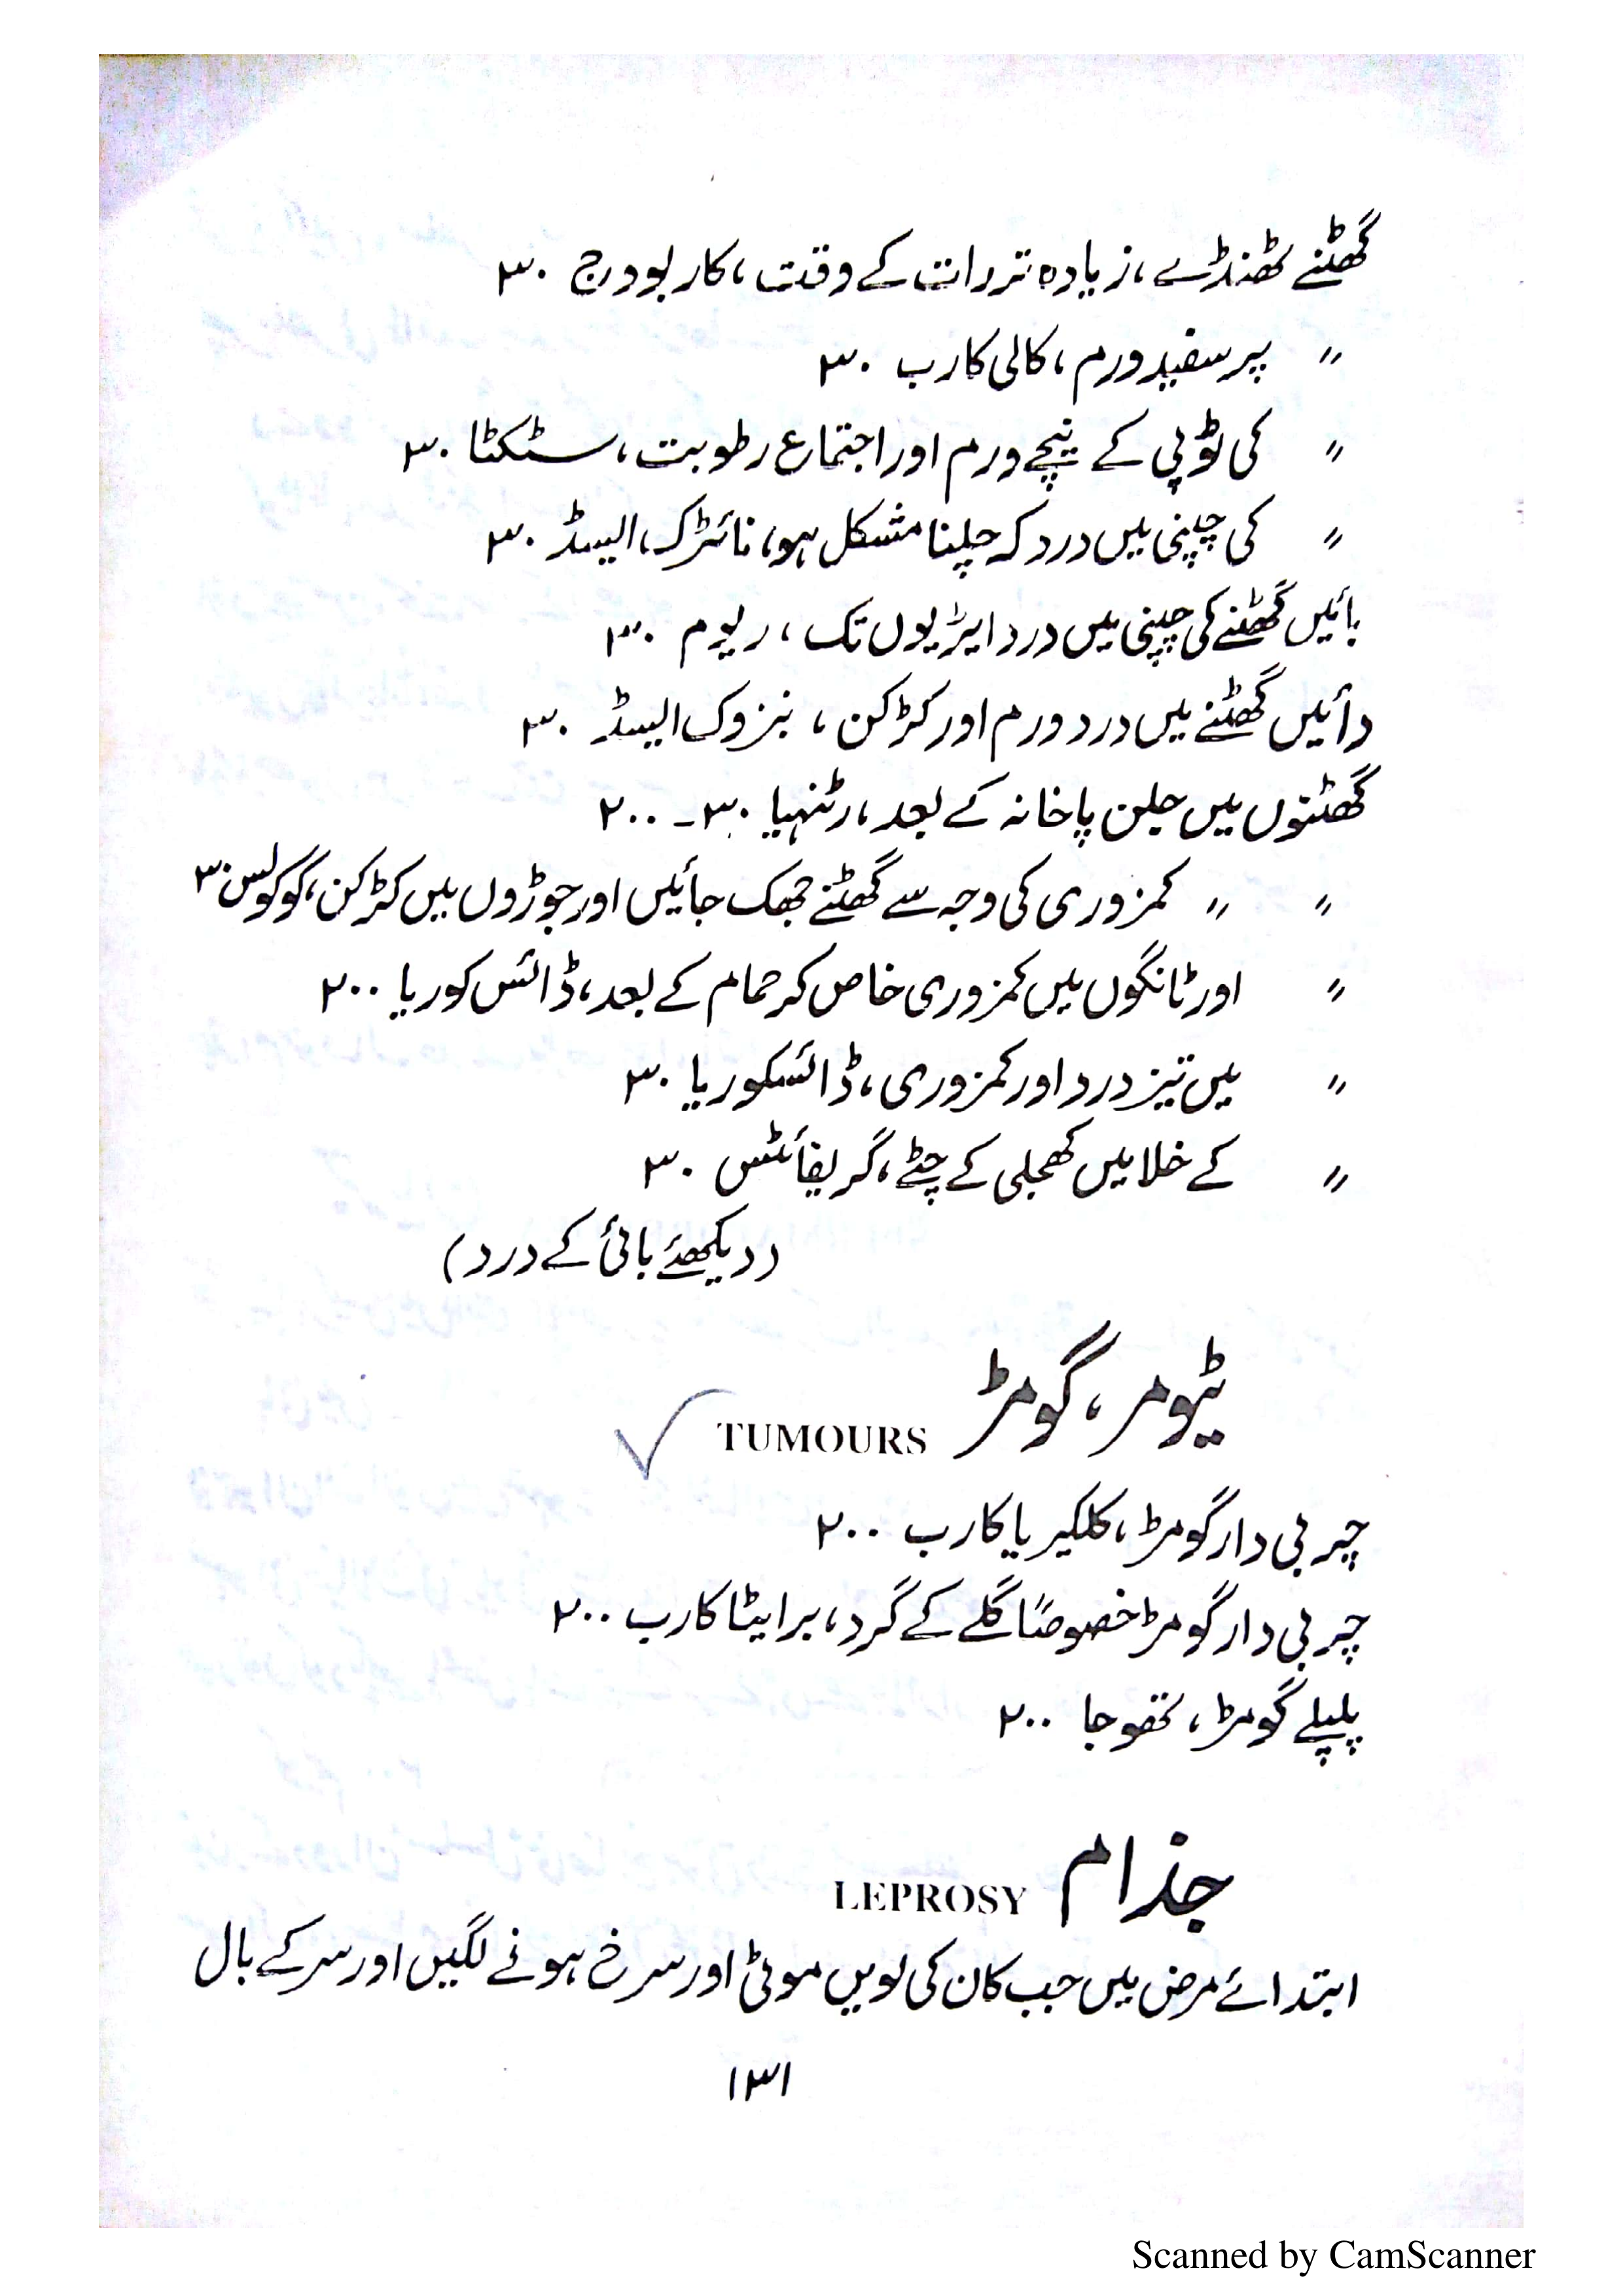 گھٹنے ٹھنڈے، زیادہ تر رات کے وقت، کاربوورج ۳۰
〃 پر سفید ورم، کالی کارب ۳۰
〃 کی ٹوپی کے نیچے ورم اور اجتماع رطوبت، سٹکٹا ۳۰
〃 کی چپنی میں درد کہ چلنا مشکل ہو، نائٹرک، ایسڈ ۳۰
بائیں گھٹنے کی چپنی میں درد ایڑیوں تک، ریوم ۳۰
دائیں گھٹنے میں درد ورم اور کڑکن، بنزوک ایسڈ ۳۰
گھٹنوں میں جلن پاخانہ کے بعد، رٹنہیا ۳۰ـ ۲۰۰
〃 〃 کمزوری کی وجہ سے گھٹنے جھک جائیں اور جوڑوں میں کڑکن، کوکولس ۳۰
〃 اور ٹانگوں میں کمزوری خاص کر حمام کے بعد، ڈائس کوریا ۲۰۰
〃 میں تیز درد اور کمزوری، ڈائسکوریا ۳۰
〃 کے خلا میں کھجلی کے چٹے، گریفائٹس ۳۰
(دیکھئے بائی کے درد)
ٹیومر، گومڑ TUMOURS
چربی دار گومڑ، کلکیریا کارب ۲۰۰
چربی دار گومڑ خصوصاً گلے کے گرد، برائیٹا کارب ۲۰۰
پلپلے گومڑ، تھوجا ۲۰۰
جذام LEPROSY
ابتدائے مرض میں جب کان کی لویں موٹی اور سرخ ہونے لگیں اور سر کے بال
۱۳۱
Scanned by CamScanner